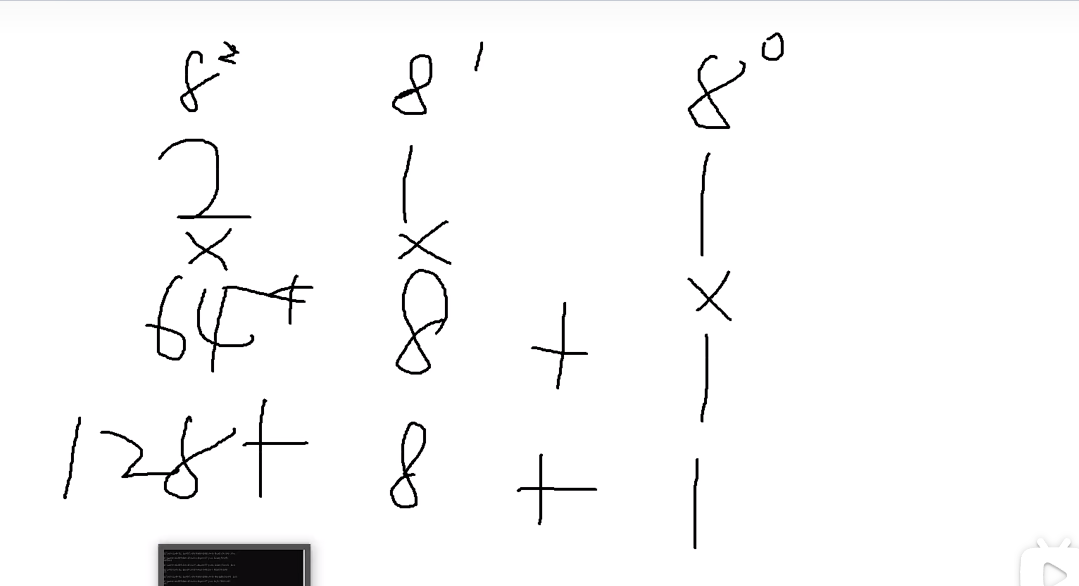 8² 8¹ 8⁰
2 1 1
x x x
64 + 8 + 1
128 + 8 + 1